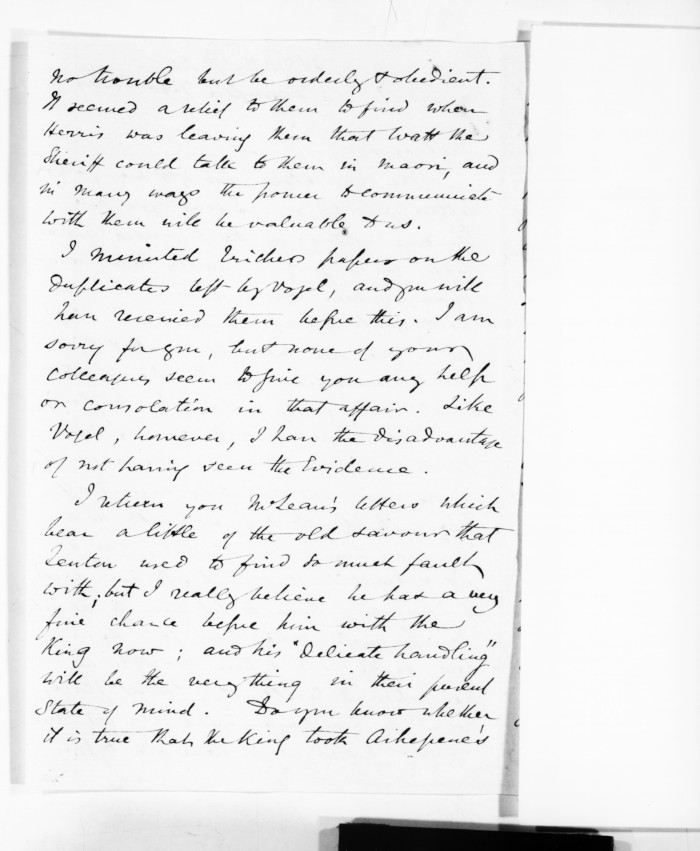 no trouble but be orderly & obedient.
It seemed a relief to them to find when
Herris was leaving them that Watt the
Sheriff could talk to them in Maori, and
in many ways the power to communicate
with them will be valuable to us.
I minuted papers on the
duplicates left by Vogel, and you will
have received them before this. I am
sorry for you, but none of your
colleagues seem to give you any help
or consolation in that affair. Like
Vogel, however, I have the disadvantage
of not having seen the Evidence.
I return you McLean's letters which
bear a little of the old savour that
used to find so much fault
with; but I really believe he has a very
fine chance before him with the
King now; and his "delicate handling"
will be the very thing in their present
State of mind. Do you know whether
it is true that the King took Aihepene's